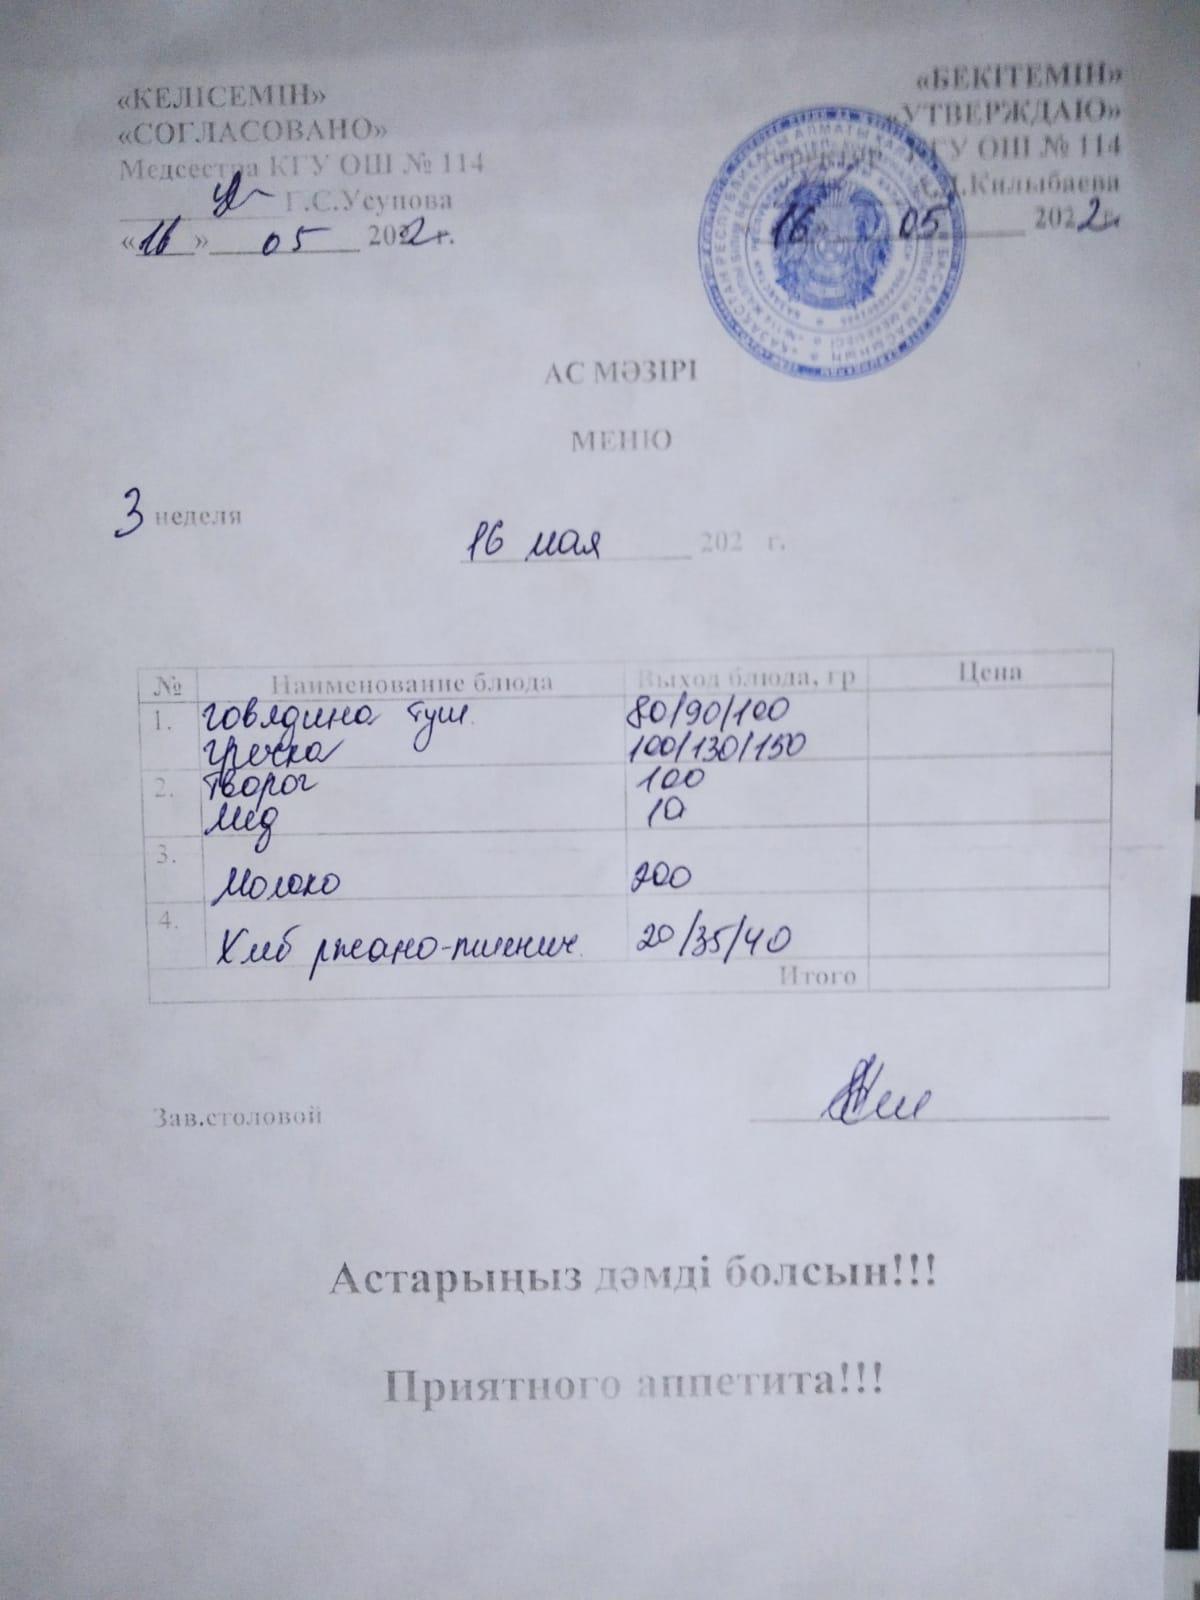 «КЕЛІСЕМІН»
«СОГЛАСОВАНО»
Медсестра КГУ ОШ № 114
Г.С.Усупова
«16» 05 2022 г.
«БЕКІТЕМІН»
«УТВЕРЖДАЮ»
Директор КГУ ОШ № 114
Килыбаева
16 05 2022 г.
АС МӘЗІРІ
МЕНЮ
3 неделя
16 мая 202 г.
№ Наименование блюда Выход блюда, гр Цена
1. говядина туш. 80/90/100
гречка 100/130/150
2. творог 100
мед 10
3.
Молоко 200
4.
Хлеб ржано-пшенич. 20/35/40
Итого
Зав.столовой
Астарыңыз дәмді болсын!!!
Приятного аппетита!!!